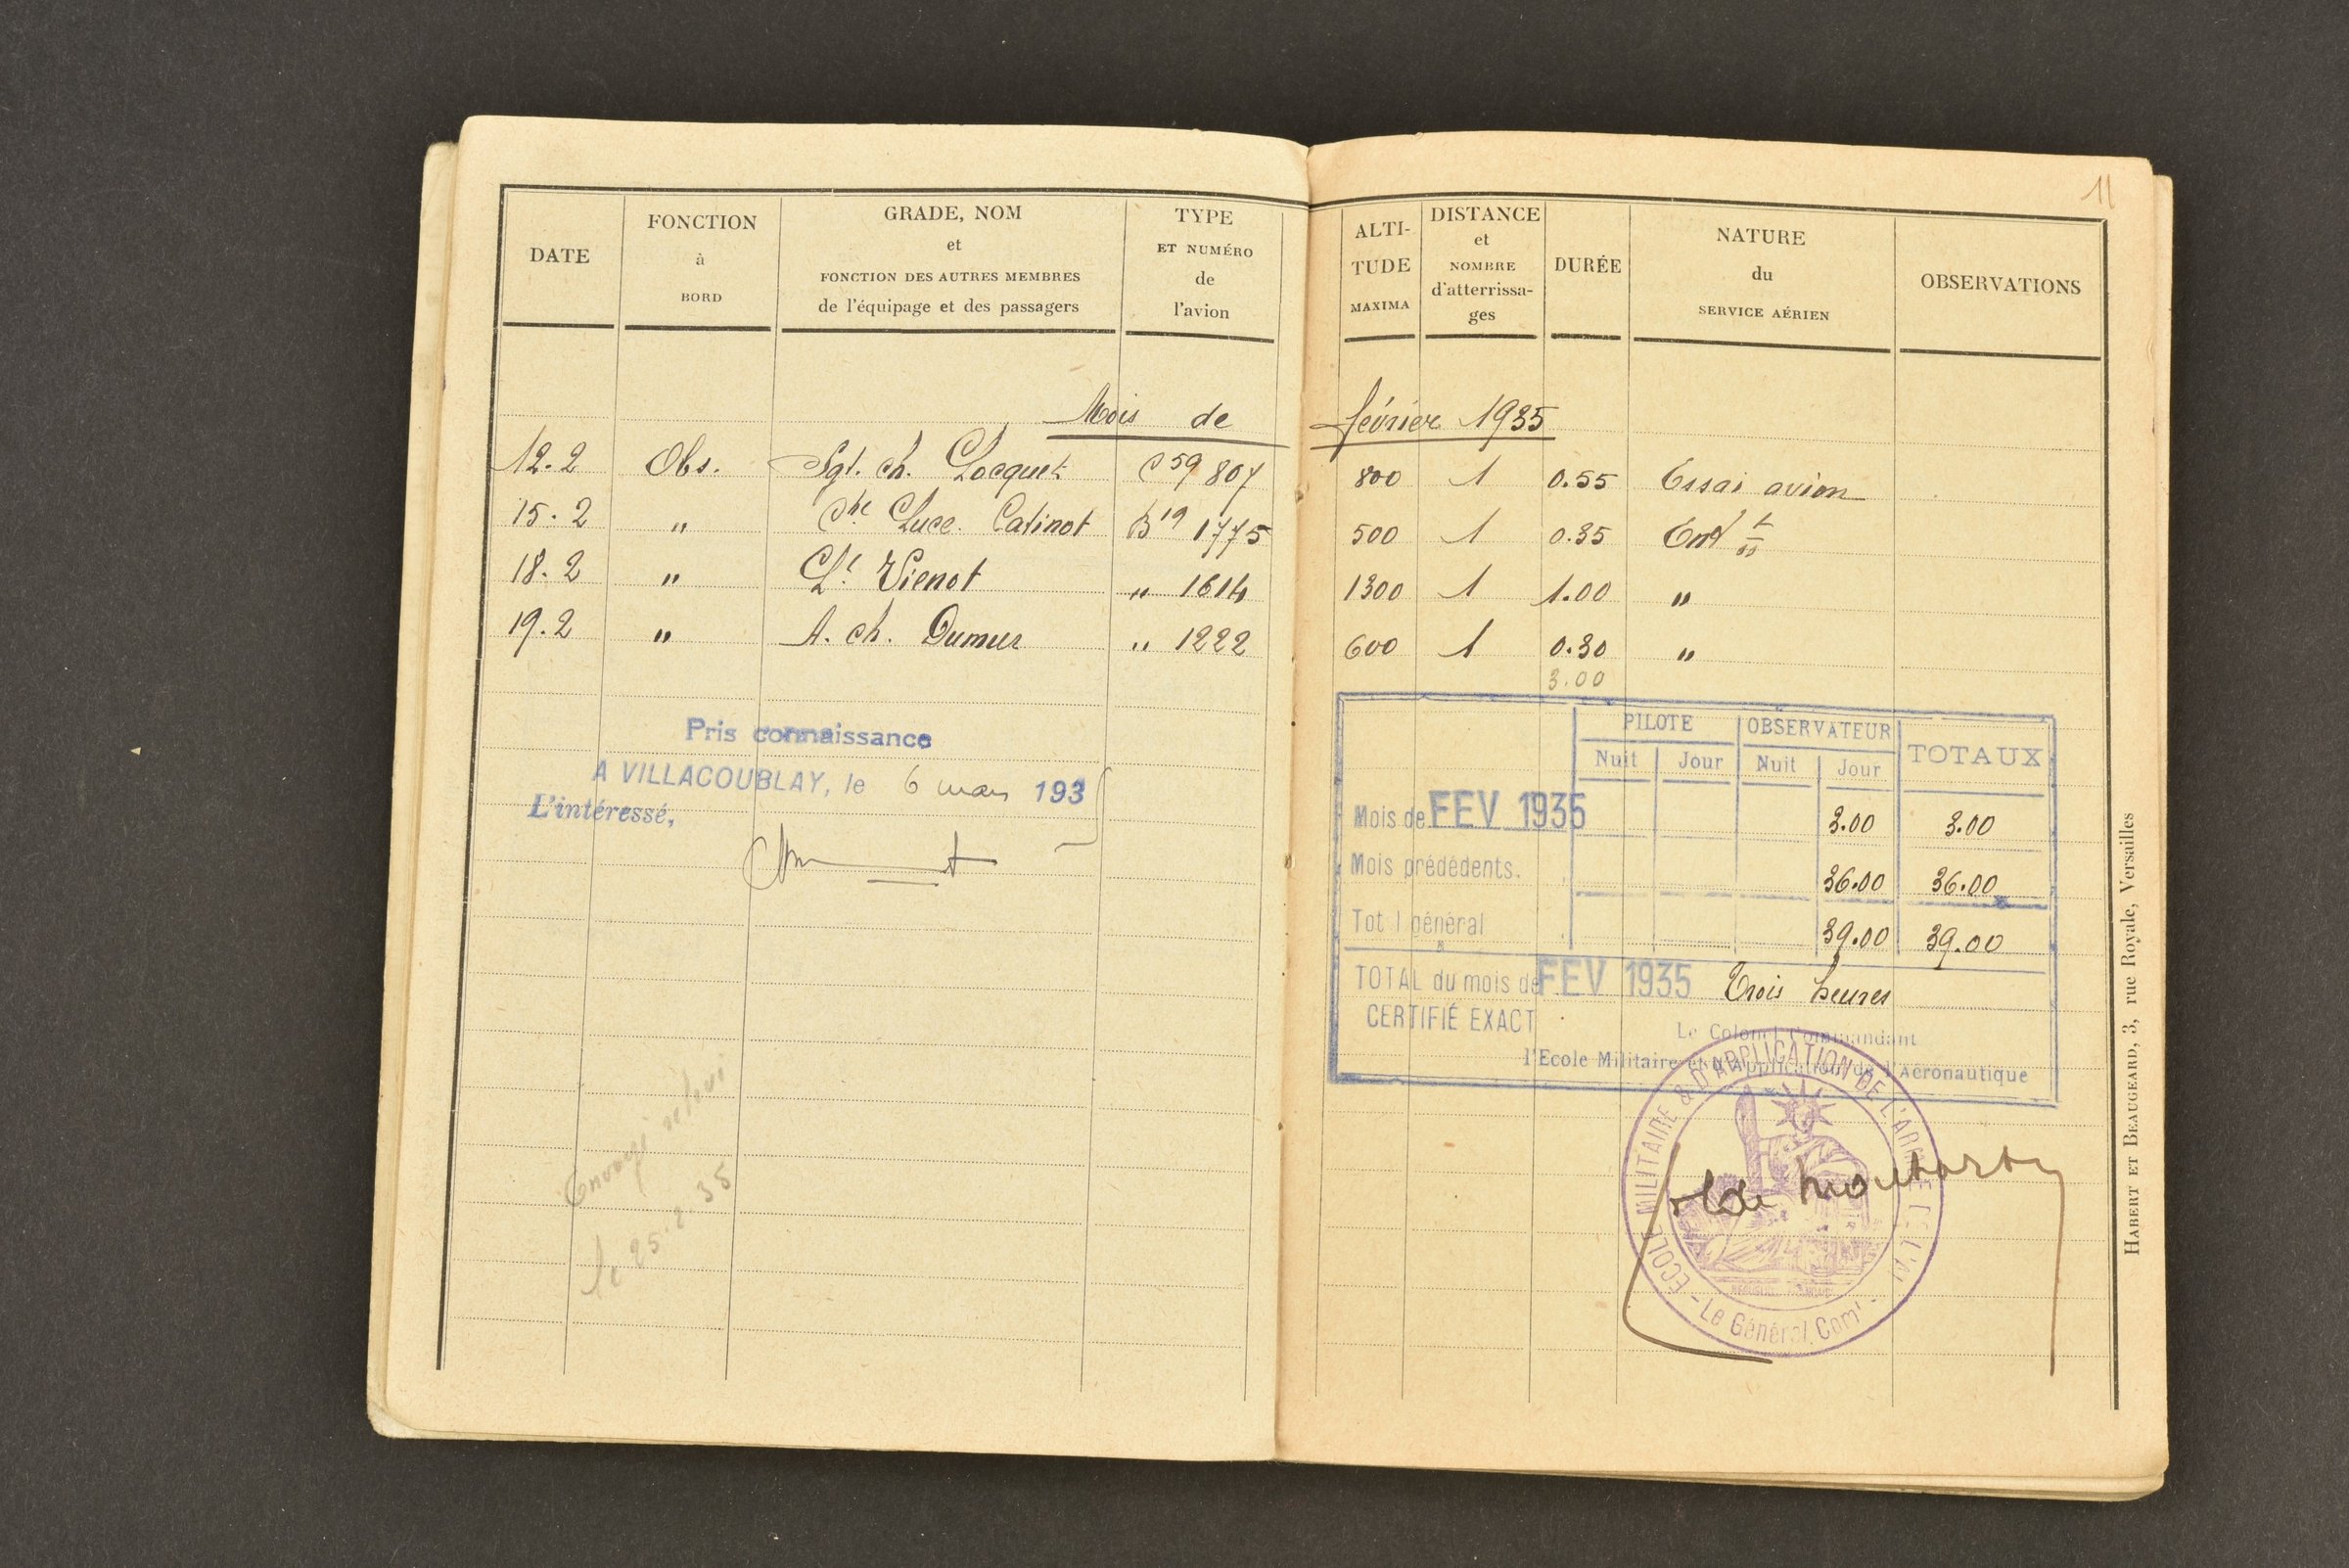 11
DATE
FONCTION
à
BORD
GRADE, NOM
et
FONCTION DES AUTRES MEMBRES
de l'équipage et des passagers
TYPE
ET NUMÉRO
de
l'avion
ALTI-
TUDE
MAXIMA
DISTANCE
et
NOMBRE
d'atterrissa-
ges
DURÉE
NATURE
du
SERVICE AÉRIEN
OBSERVATIONS
Mois de février 1935
12.2 Obs. Sgt. ch. Locquet C 59 807 800 1 0.55 Essai avion
15.2 " Luce. Catinot B 19 1775 500 1 0.35 Ent t
18.2 " Lt Vienot " 1614 1300 1 1.00 "
19.2 " A. ch. Dumur " 1222 600 1 0.30 "
3.00
Pris connaissance
A VILLACOUBLAY, le 6 mars 193
L'intéressé,
Envoyé
le 25.2.35
PILOTE OBSERVATEUR TOTAUX
Nuit Jour Nuit Jour
Mois de FEV 1935 3.00 3.00
Mois prédédents. 36.00 36.00
Tot l général 39.00 39.00
TOTAL du mois de FEV 1935 Trois heures
CERTIFIÉ EXACT
Le Colonel Commandant
l'Ecole Militaire et d'Application de l'Aéronautique
ECOLE MILITAIRE & D'APPLICATION DE L'ARMÉE DE L'AI
- Le Général Comt -
de Montarby
HABERT ET BEAUGEARD, 3, rue Royale, Versailles